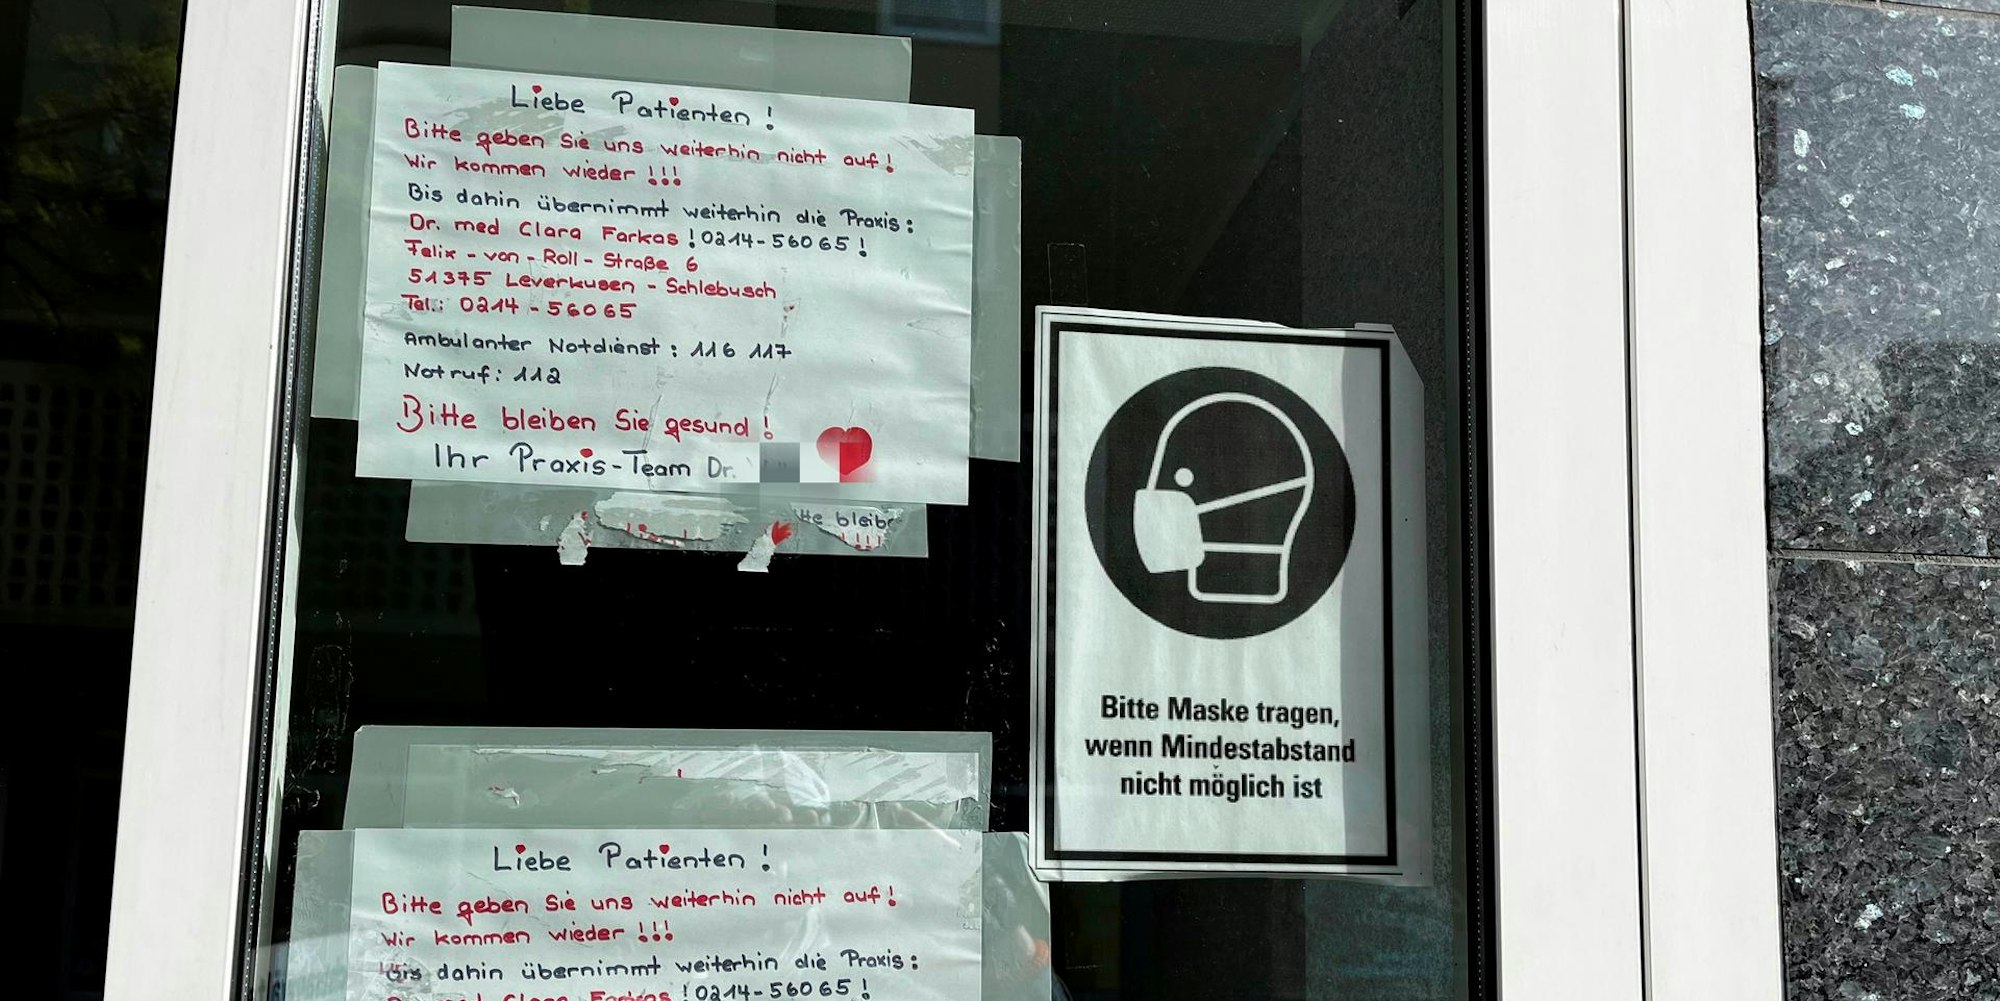 Liebe Patienten!
Bitte geben Sie uns weiterhin nicht auf!
Wir kommen wieder!!!
Bis dahin übernimmt weiterhin die Praxis:
Dr. med Clara Farkas! 0214-56065!
Felix-von-Roll-Straße 6
51375 Leverkusen-Schlebusch
Tel.: 0214-56065
Ambulanter Notdienst: 116 117
Notruf: 112
Bitte bleiben Sie gesund!
Ihr Praxis-Team Dr.
Bitte Maske tragen,
wenn Mindestabstand
nicht möglich ist
Liebe Patienten!
Bitte geben Sie uns weiterhin nicht auf!
Wir kommen wieder!!!
Bis dahin übernimmt weiterhin die Praxis:
Clara Farkas! 0214-56065!